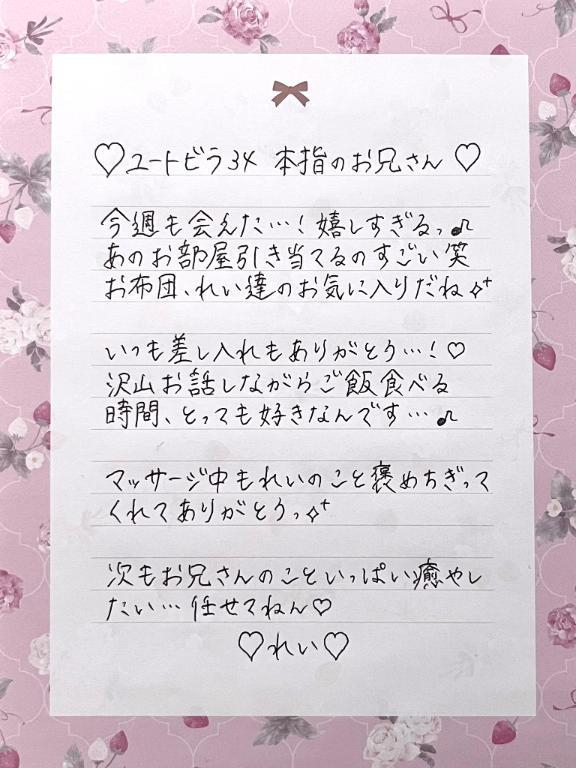 ♡ユートピラ34 本指のお兄さん♡
今週も会えた…!嬉しすぎるっ♪
あのお部屋引き当てるのすごい笑
お布団、れい達のお気に入りだね✧⁺
いつも差し入れもありがとう…!♡
沢山お話しながらご飯食べる
時間、とっても好きなんです…♪
マッサージ中もれいのこと褒めちぎって
くれてありがとうっ✧⁺
次もお兄さんのこといっぱい癒やし
たい…任せてねん♡
♡れい♡